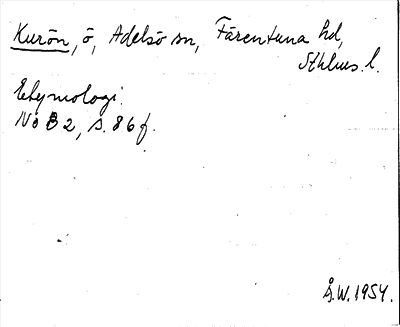 Kurön, ö, Adelsö sn, Färentuna hd,
Sthlms. l.
Etymologi.
NoB 2, s. 86 f.
Å.W. 1954.